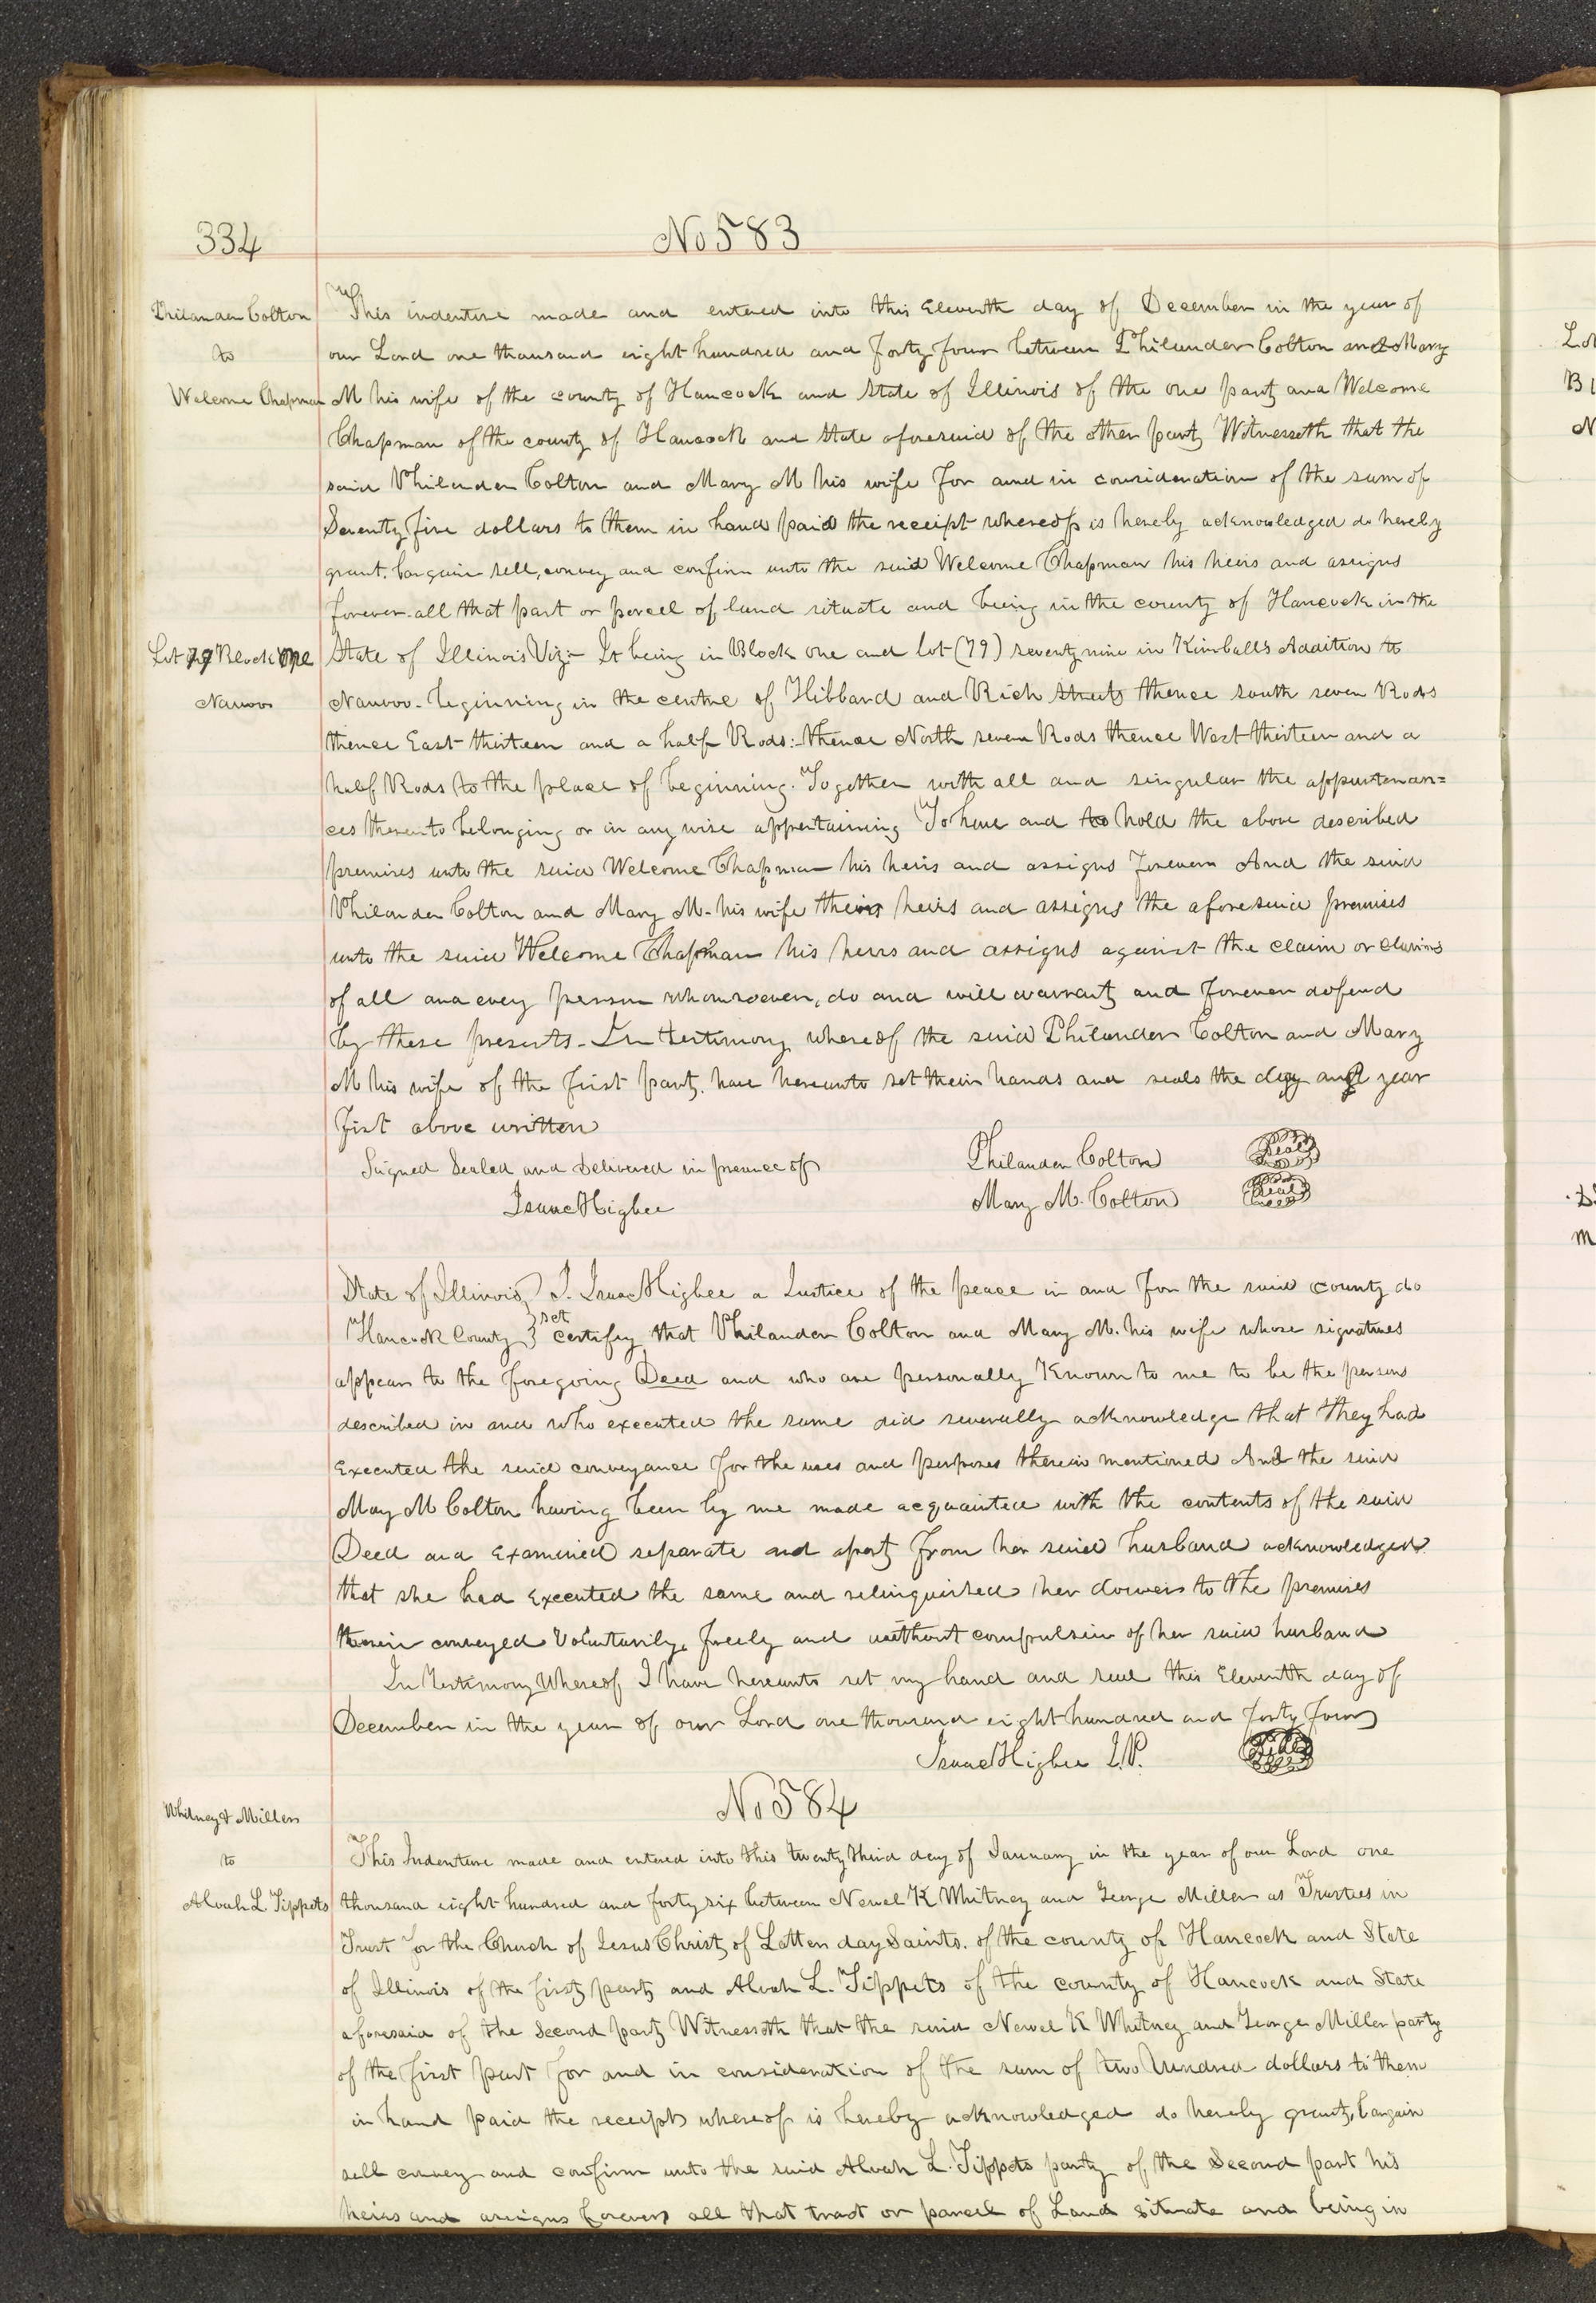 334
No 583
Philander Colton
to
Welcome Chapman
This indenture made and entered into this Eleventh day of December in the year of
our Lord one thousand eight hundred and forty four between Philander Colton and Mary
M his wife of the county of Hancock and State of Illinois of the one party and Welcome
Chapman of the county of Hancock and State aforesaid of the other party Witnesseth that the
said Philander Colton and Mary M his wife for and in consideration of the sum of
Seventy five dollars to them in hand paid the receipt whereof is hereby acknowledged do hereby
grant, bargain sell, convey and confirm unto the said Welcome Chapman his heirs and assigns
forever all that part or parcel of land situate and being in the county of Hancock in the
Lot 79 Block One
Nauvoo
State of Illinois Viz:- It being in Block one and lot (79) seventy nine in Kimballs Addition to
Nauvoo- beginning in the centre of Hibbard and Rich Streets thence south seven Rods
thence East thirteen and a half Rods:- thence North seven Rods thence West thirteen and a
half Rods to the place of beginning. Together with all and singular the appurtenan=
ces thereunto belonging or in any wise appertaining To have and to hold the above described
premises unto the said Welcome Chapman his heirs and assigns forever And the said
Philander Colton and Mary M. his wife their heirs and assigns the aforesaid premises
unto the said Welcome Chapman his heirs and assigns against the claim or claims
of all and every person whomsoever, do and will warrant and forever defend
by these presents- In testimony whereof the said Philander Colton and Mary
M his wife of the first party have hereunto set their hands and seals the day and year
first above written
Signed Sealed and Delivered in presence of
Isaac Higbee
Philander Colton Seal
Mary M. Colton Seal
State of Illinois } I. Isaac Higbee a Justice of the peace in and for the said county do
Hancock County } sct certify that Philander Colton and Mary M. his wife whose signatures
appear to the foregoing Deed and who are personally Known to me to be the persons
described in and who executed the same did severally acknowledge that they had
Executed the said conveyance for the uses and purposes therein mentioned And the said
May M Colton having been by me made acquainted with the contents of the said
Deed and Examined separate and apart from her said husband acknowledged
that she had Executed the same and relinquished her dower to the premises
therein conveyed Voluntarily, freely and without compulsion of her said husband
In Testimony Whereof I have hereunto set my hand and seal this Eleventh day of
December in the year of our Lord one thousand eight hundred and forty four
Isaac Higbee J.P.
No 584
Whitney & Miller
to
Alvah L. Tippets
This Indenture made and entered into this twenty third day of January in the year of our Lord one
thousand eight hundred and forty six between Newel K Whitney and George Miller as Trustees in
Trust for the Church of Jesus Christ of Latter day Saints. of the county of Hancock and State
of Illinois of the first party and Alvah L. Tippets of the county of Hancock and State
aforesaid of the Second party Witnesseth that the said Newel K Whitney and George Miller party
of the first part for and in consideration of the sum of two hundred dollars to them
in hand paid the receipt whereof is hereby acknowledged do hereby grant, bargain
sell convey and confirm unto the said Alvah L. Tippets party of the Second part his
heirs and assigns forever all that tract or parcel of Land situate and being in